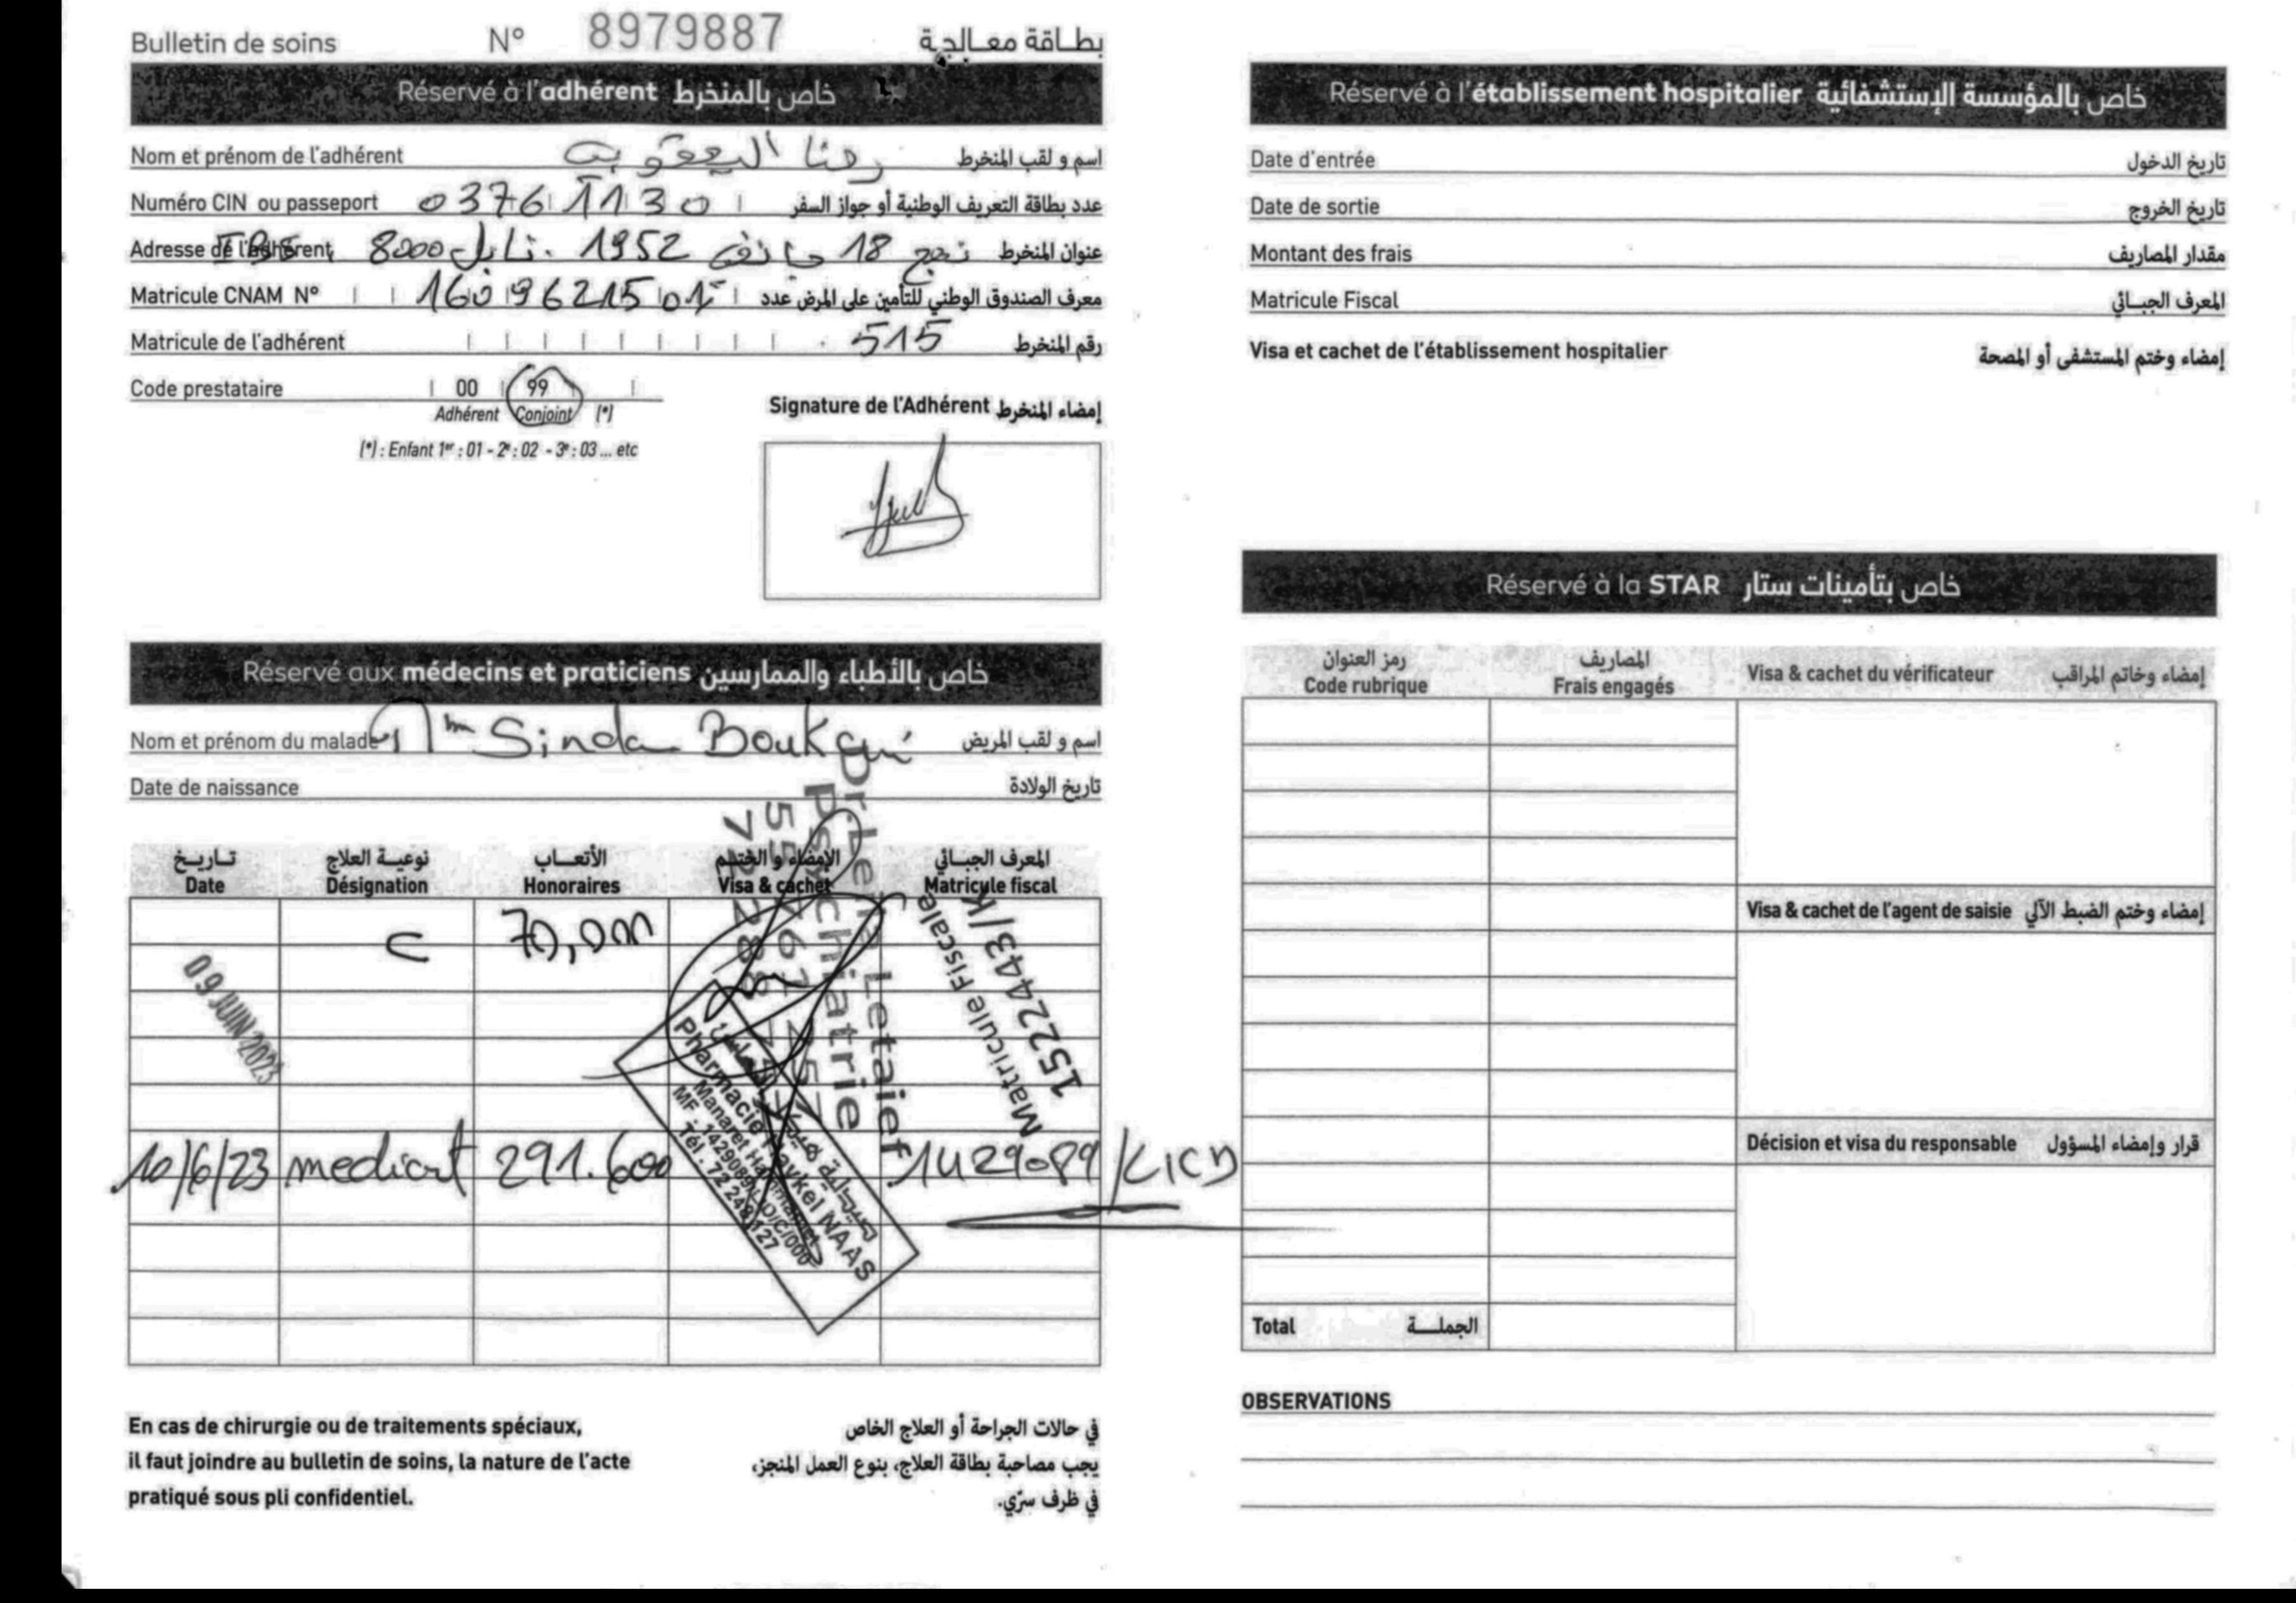 Bulletin de soins N° 8979887 بطاقة معالجة
Réservé à l'adhérent خاص بالمنخرط
Nom et prénom de l'adhérent رضا اليعقوبي اسم و لقب المنخرط
Numéro CIN ou passeport 03761130 عدد بطاقة التعريف الوطنية أو جواز السفر
Adresse de l'adhérent نهج 18 جانفي 1952 نابل 8000 عنوان المنخرط
Matricule CNAM N° معرف الصندوق الوطني للتأمين على المرض عدد
Matricule de l'adhérent 515 رقم المنخرط
Code prestataire 00 99
Adhérent Conjoint (*)
(*) : Enfant 1er : 01 - 2e : 02 - 3e : 03 ... etc
Signature de l'Adhérent إمضاء المنخرط
Réservé aux médecins et praticiens خاص بالأطباء والممارسين
Nom et prénom du malade Mme Sinda اسم و لقب المريض
Date de naissance تاريخ الولادة
تاريخ نوعية العلاج الأتعاب الإمضاء و الختم المعرف الجبائي
Date Désignation Honoraires Visa & cachet Matricule fiscal
09 JUIN 2023 C 70,000
Psychiatrie
Letaief
Matricule Fiscale
1522443/K
10/6/23 291.600 1429089
صيدلية
Pharmacie Haykel NAAS
Manaret Hammamet
Tél. 72 248 127
En cas de chirurgie ou de traitements spéciaux,
il faut joindre au bulletin de soins, la nature de l'acte
pratiqué sous pli confidentiel.
في حالات الجراحة أو العلاج الخاص
يجب مصاحبة بطاقة العلاج، بنوع العمل المنجز،
في ظرف سرّي.
Réservé à l'établissement hospitalier خاص بالمؤسسة الإستشفائية
Date d'entrée تاريخ الدخول
Date de sortie تاريخ الخروج
Montant des frais مقدار المصاريف
Matricule Fiscal المعرف الجبائي
Visa et cachet de l'établissement hospitalier إمضاء وختم المستشفى أو المصحة
Réservé à la STAR خاص بتأمينات ستار
رمز العنوان المصاريف
Code rubrique Frais engagés
Visa & cachet du vérificateur إمضاء وخاتم المراقب
Visa & cachet de l'agent de saisie إمضاء وختم الضبط الآلي
Décision et visa du responsable قرار وإمضاء المسؤول
Total الجملة
OBSERVATIONS